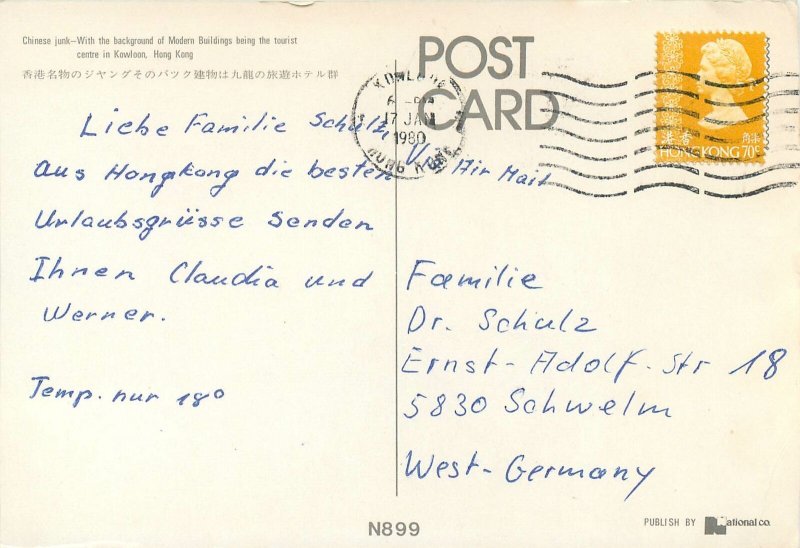 Chinese junk—With the background of Modern Buildings being the tourist
centre in Kowloon, Hong Kong
香港名物のジヤングそのバツク建物は九龍の旅遊ホテル群
POST
CARD
KOWLOON
17 JAN
1980
HONG KONG
香港
HONG KONG 70c
Liebe Familie Schulz,
aus Hongkong die besten
Urlaubsgrüsse senden
Ihnen Claudia und
Werner.
Temp. nur 18°
Air Mail
Familie
Dr. Schulz
Ernst-Adolf-Str 18
5830 Schwelm
West-Germany
N899
PUBLISH BY National co.